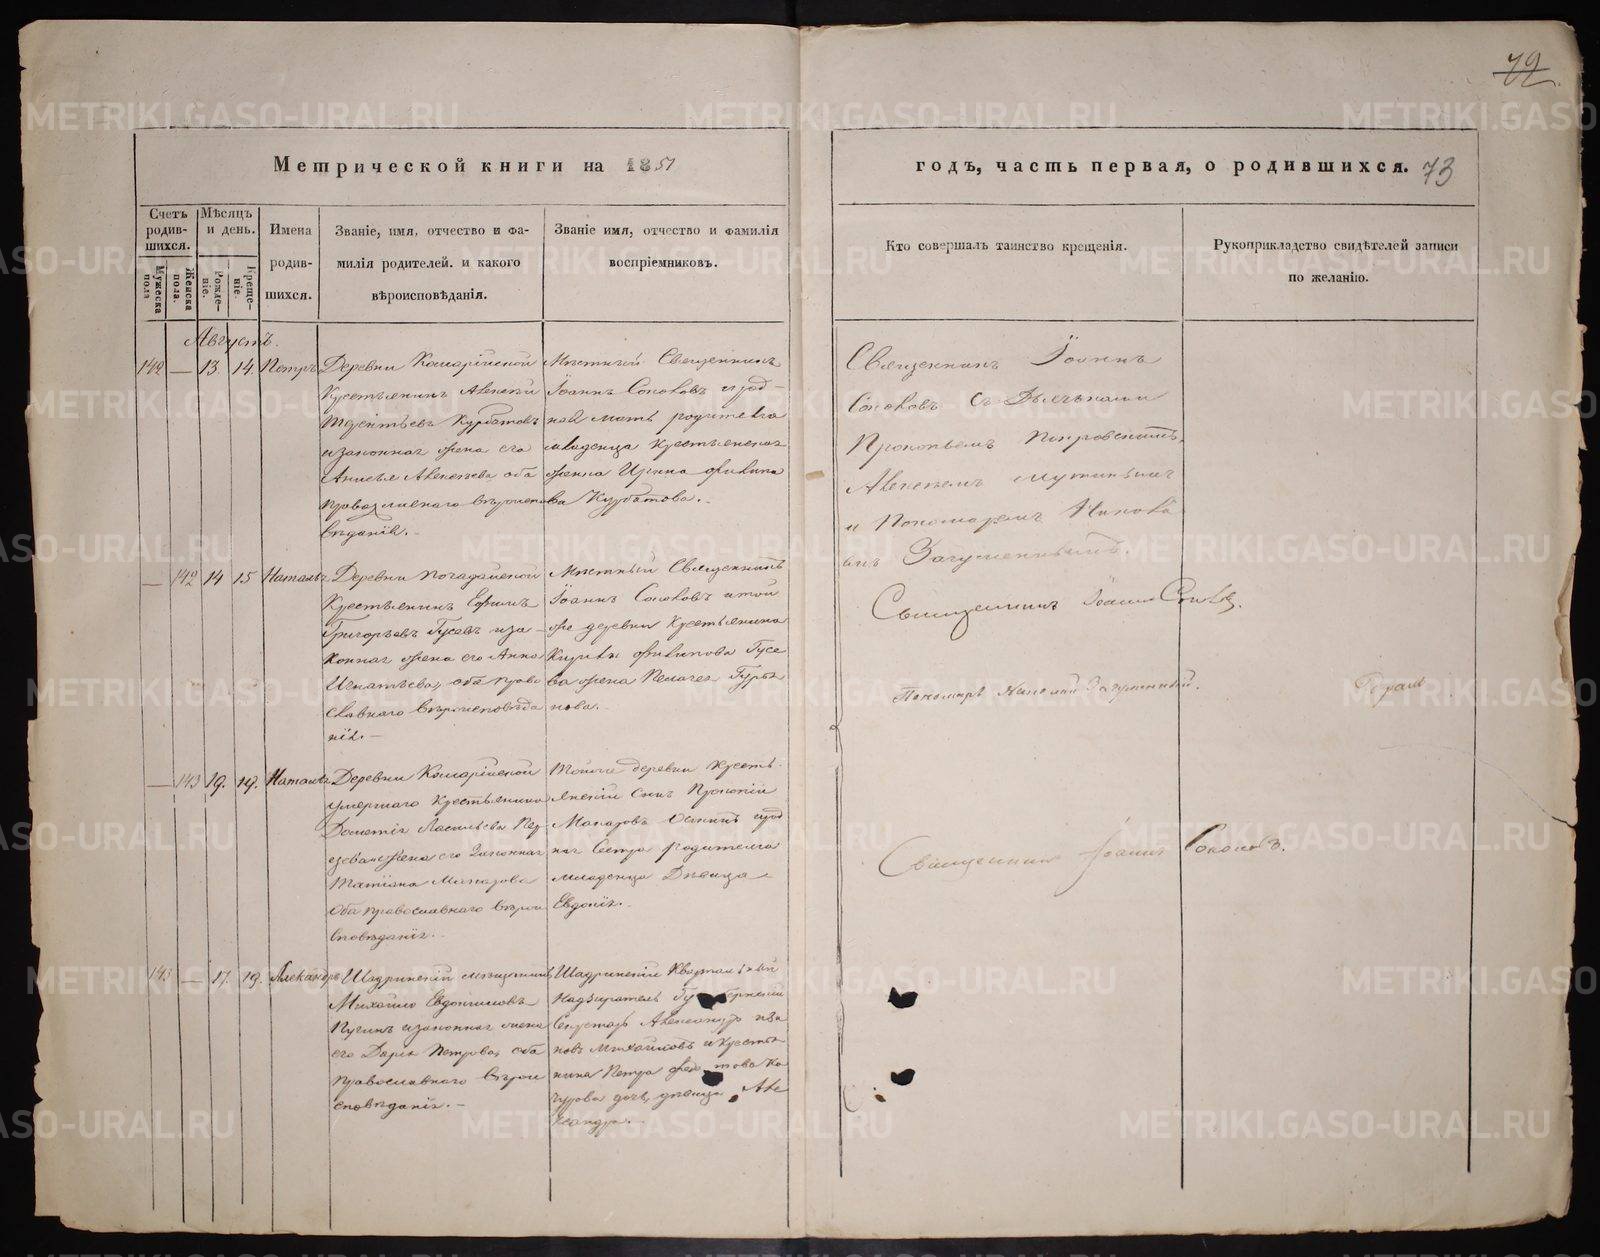 79
Метрической книги на 1851
годъ, часть первая, о родившихся. 73
Счетъ родившихся.
Мужеска пола
Женска пола.
Мѣсяцъ и день.
Рожденіе.
Крещеніе.
Имена родившихся.
Званіе, имя, отчество и фамилія родителей. и какого вѣроисповѣданія.
Званіе имя, отчество и фамилія воспріемниковъ.
Кто совершалъ таинство крещенія.
Рукоприкладство свидѣтелей записи по желанію.
Августъ.
142 — 13. 14. Петръ
Деревни
Крестьянинъ Алексѣй
Курбатовъ
и законная жена его
Анисья Алексѣева оба
православнаго вѣроиспо
вѣданія. —
Мѣстный Священникъ
Іоаннъ Соколовъ и род-
ная мать родителя
младенца крестьянская
жена Ирина Филипо
ва Курбатова. —
Священникъ Іоаннъ
Соколовъ съ Дьячками
Прокопьемъ Покровскимъ,
Алексѣемъ
и Пономаремъ
Священникъ Іоаннъ Соколовъ.
— 142 14 15 Наталья
Деревни
Крестьянинъ Ефимъ
Григорьевъ Гусевъ и за-
конная жена его Анна
Игнатьева, оба право
славнаго вѣроисповѣда
нія. —
Мѣстный Священникъ
Іоаннъ Соколовъ и той
же деревни Крестьянина
Кирила Филипова Гусе
ва жена Пелагея Гурья
нова. —
Пономарь
— 143 19. 19. Наталья
Деревни
умершаго Крестьянина
Дометія
жена его Законная
Татіана Макарова
оба православнаго вѣрои
сповѣданія. —
Тойже деревни Кресть-
янскій Сынъ Прокопій
Макаровъ и род
ная Сестра родителя
младенца Дѣвица
Евдокія. —
Священникъ Іоаннъ Соколовъ.
143 — 17. 19. Александръ
Шадринскій мѣщанинъ
Михайло Евдокимовъ
и законная жена
его Дарья Петрова, оба
православнаго вѣрои
сповѣданія. —
Шадринскій Квартальный
Надзиратель Губернскій
Секретарь Александръ Ива
новъ Михайловъ и крестья
нина Петра
дочь, дѣвица Алек
сандра. —
METRIKI.GASO-URAL.RU